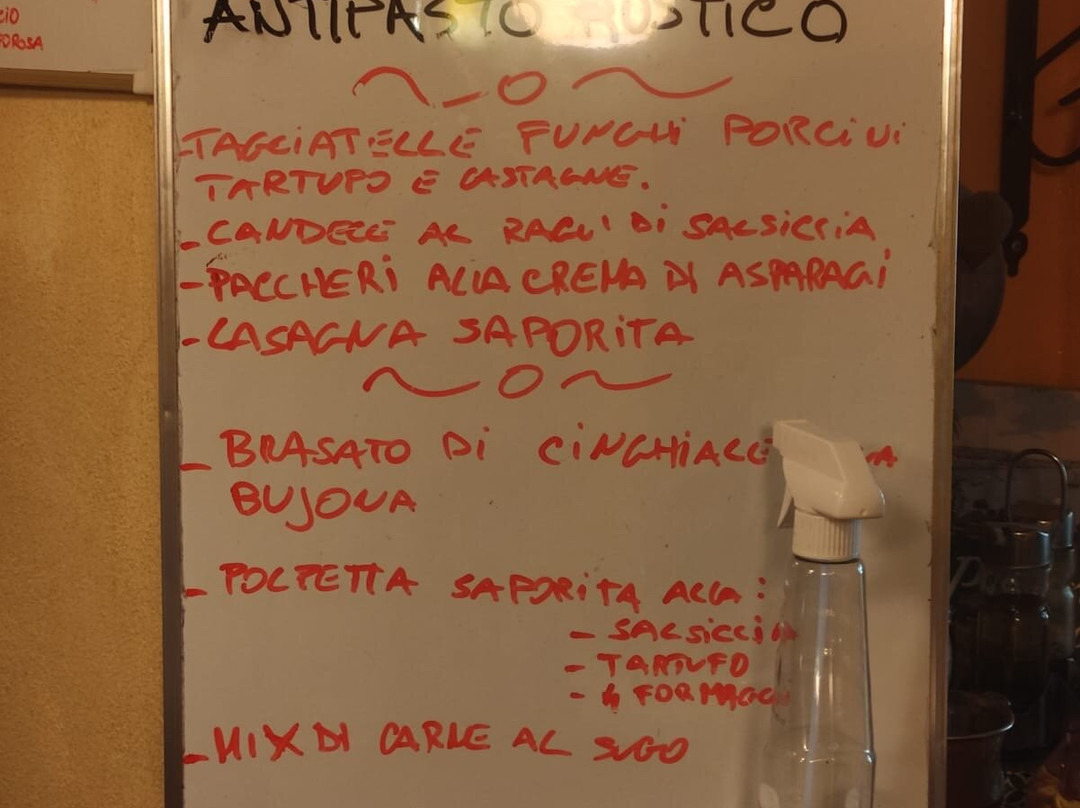 CIO
OROSA
ANTIPASTO RUSTICO
- TAGLIATELLE FUNGHI PORCINI
TARTUFO E CASTAGNE.
- CANDELE AL RAGU' DI SALSICCIA
- PACCHERI ALLA CREMA DI ASPARAGI
- LASAGNA SAPORITA
- BRASATO DI CINGHIALE
BUJONA
- POLPETTA SAPORITA ALLA:
- SALSICCIA
- TARTUFO
- 4 FORMAGGI
- MIX DI CARNE AL SUGO